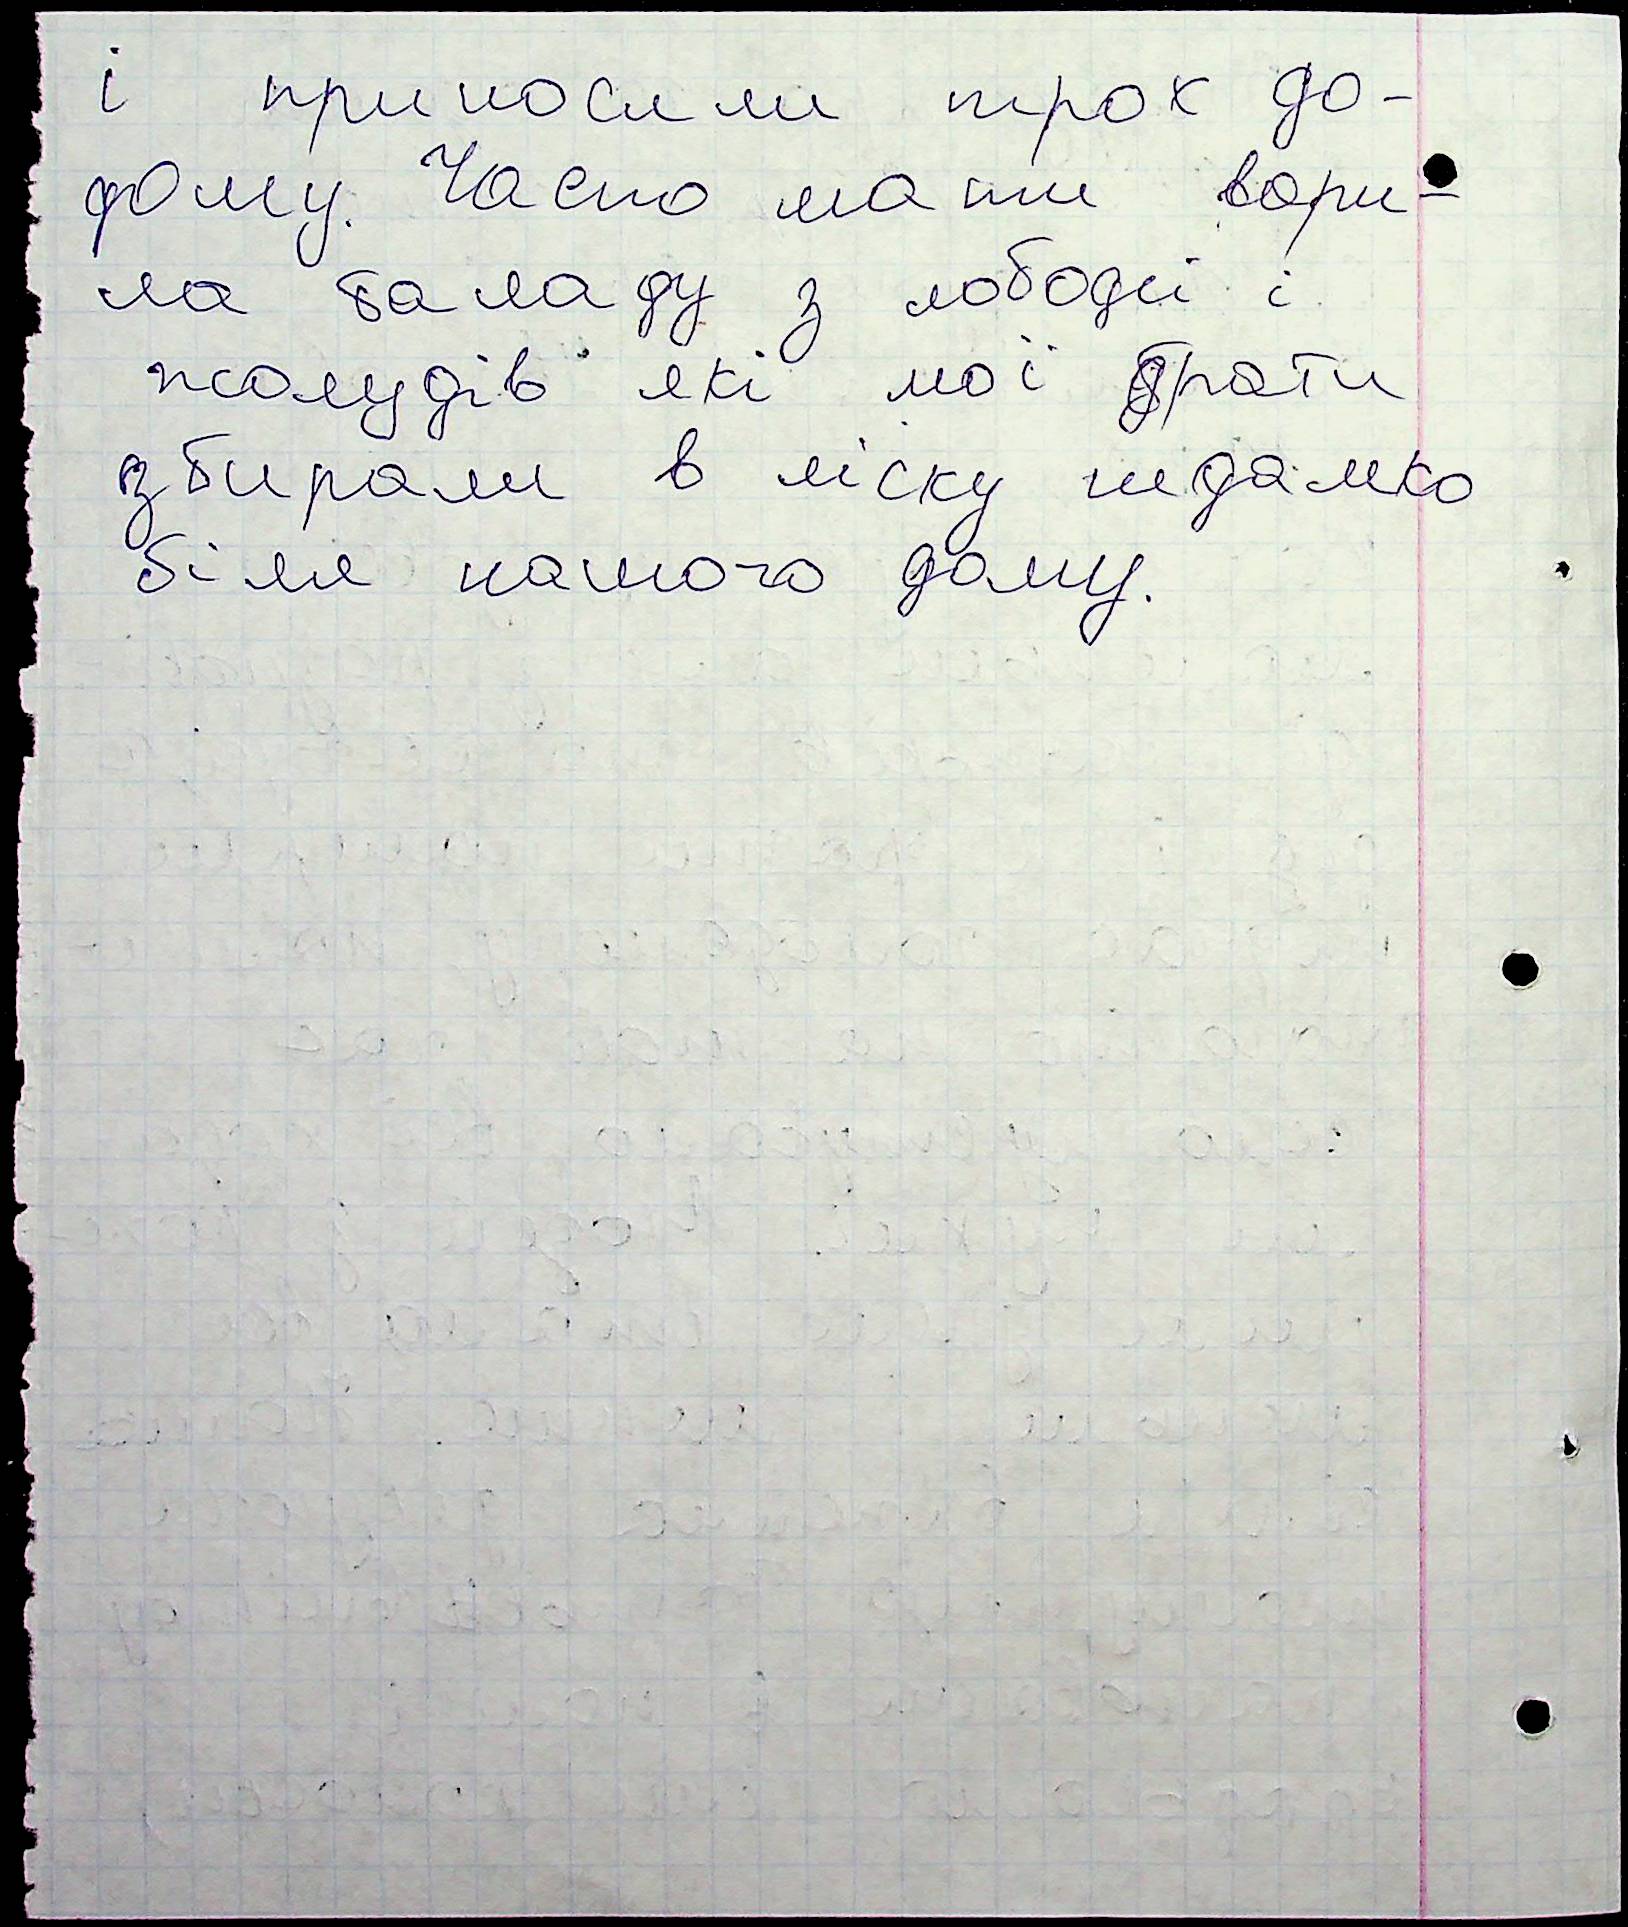 і приносили трох до-
дому. Часто мати вари-
ла баладу з лободи і
жолудів які мої брати
збирали в ліску недалко
біля нашого дому.